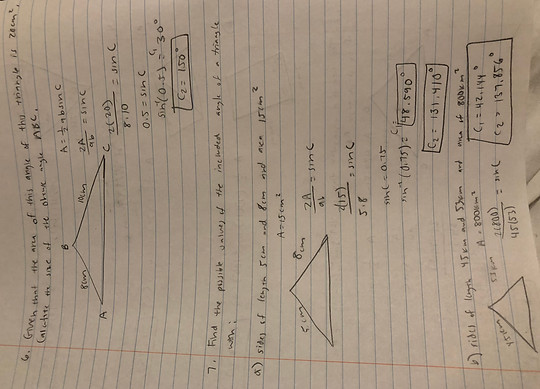 6. Given that the area of this angle of this triangle is 20cm²,
Calculate the size of the obtuse angle ABC.
B
8cm
10cm
A
C
A = ½ab sin C
2A/ab = sin C
2(20)/8·10 = sin C
0.5 = sin C
sin⁻¹(0.5) = 30°
C₁
C₂ = 150°
7. Find the possible values of the included angle of a triangle
with:
a) sides of length 5cm and 8cm and area 15cm²
5cm
8cm
A = 15cm²
2A/ab = sin C
2(15)/5·8 = sin C
sin C = 0.75
sin⁻¹(0.75) = C₁ 48.590°
C₂ = 131.410°
b) sides of length 45km and 53km and area of 800km²
45km
53km
A = 800km²
2(800)/45(53) = sin C
C₁ = 42.144°
C₂ = 137.856°